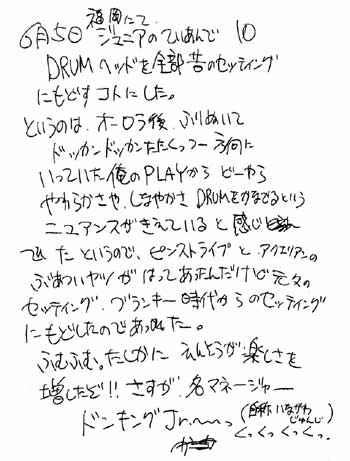 6月5日 福岡にて. 10
ジュニアのていあんで
DRUMヘッドを全部昔のセッティング
にもどすコトにした。
というのは、オーロラ後、ぶりぬいて
ドッカンドッカンたたくっつー方向に
いっていた俺のPLAYから どーやら
やわらかさや、しなやかさ DRUMをかなでるという
ニュアンスがきえていると感じ
でた というので、ピンストライプと アクエリアンの
ぶあついヤツがはってあったんだけど元々の
セッティング、ブランキー時代からのセッティング
にもどしたのであった。
ふむふむ。たしかに えんそうが楽しさを
増したぞ!! さすが、名マネージャー
ドンキングJr.〜〜っ
(自称 いながわじゅんじ)
くっくっくっくっ.